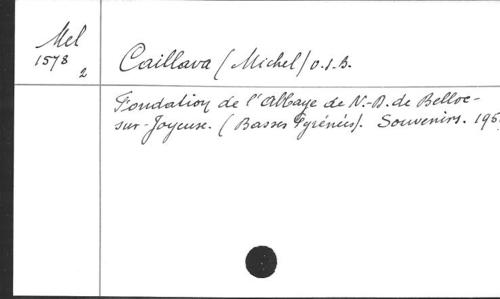 Mel
1578
2
Caillava (Michel) O.S.B.
Fondation de l'Abbaye de N.-D. de Belloc-
sur-Joyeuse. (Basses Pyrénées). Souvenirs. 196